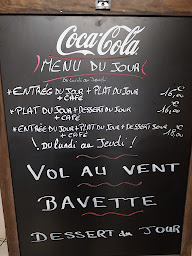 Coca-Cola
MENU DU JOUR
Du Lundi au Jeudi
*ENTRÉE DU JOUR + PLAT DU JOUR
+ CAFÉ
*PLAT DU JOUR + DESSERT DU JOUR
+ CAFÉ
*ENTRÉE DU JOUR + PLAT DU JOUR + DESSERT JOUR
+ CAFÉ 18,00
! Du lundi au Jeudi !
VOL AU VENT
BAVETTE
DESSERT du JOUR